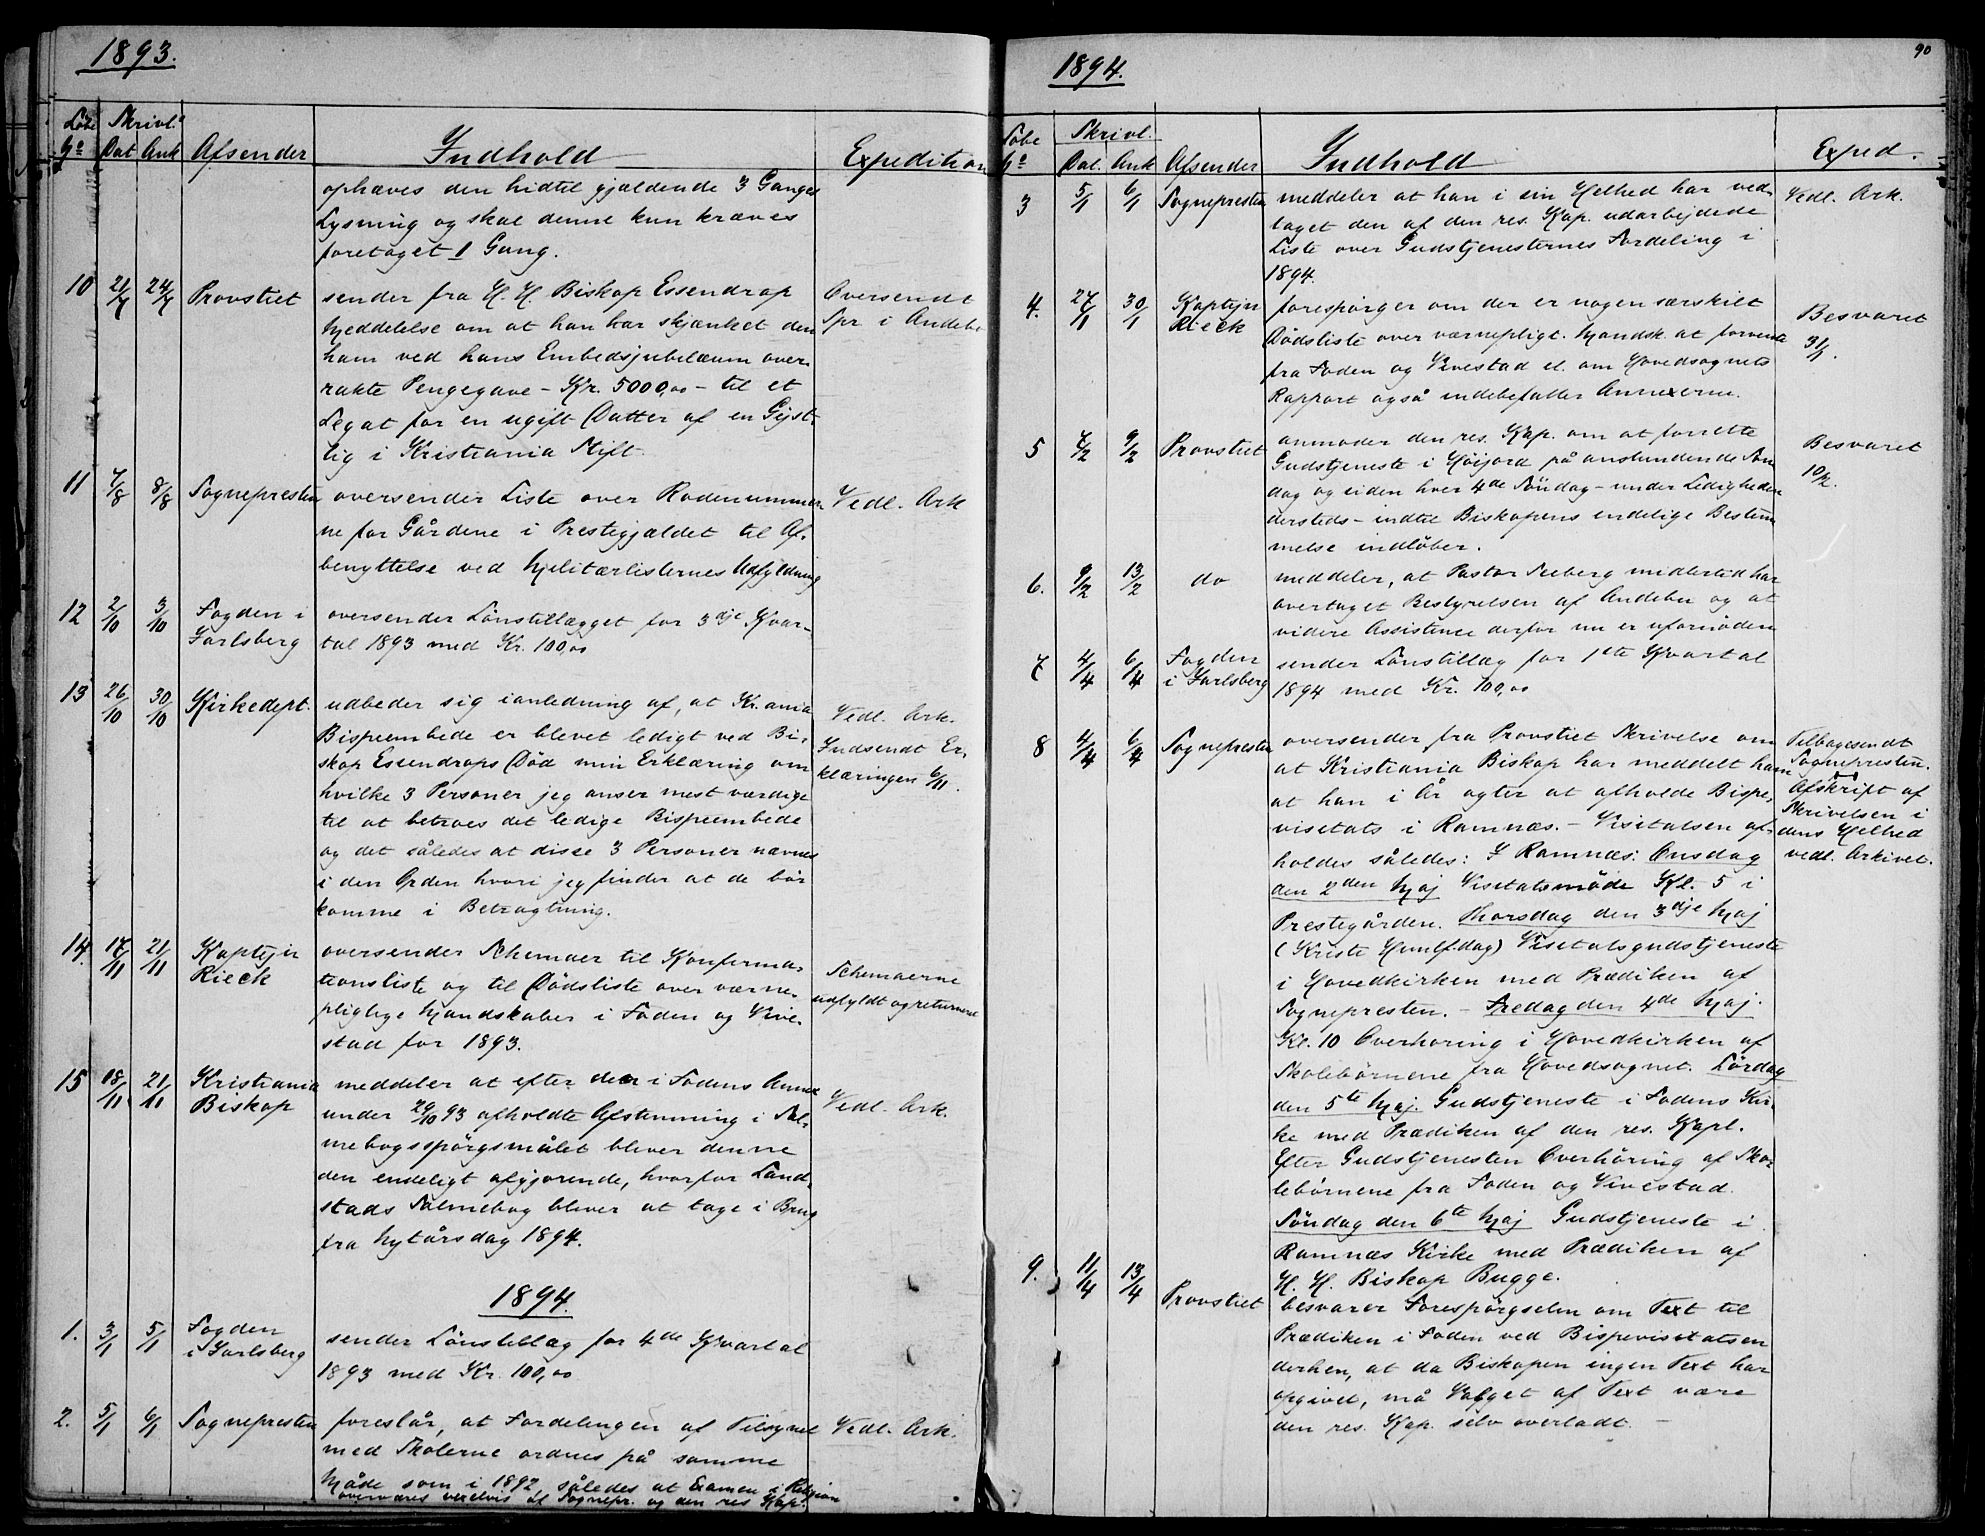 1893.
Løbe Skrivl.
No Dat Ank Afsender Indhold Expedition
ophæves den hidtil gjældende 3 Ganges
Lysning og skal denne kun kræves
foretaget 1 Gang.
10 21/7 24/7 Provstiet sender fra H. H. Biskop Essendrop Oversendt
Meddelelse om at han har skjænket den Spr i Andebo
ham ved hans Embedsjubelæum over-
rakte Pengegave - Kr. 5000,00 - til et
Legat for en ugift Datter af en Gejst-
lig i Kristiania Stift.
11 7/8 8/8 Sognepresten oversender Liste over Rodenummer- Vedl. Ark
ne for Gårdene i Prestegjældet til Af-
benyttelse ved Militærlisternes Udfyldning
12 2/10 3/10 Fogden i oversender Lönstillægget for 3dje Kvar-
Jarlsberg tal 1893 med Kr. 100,00
13 26/10 30/10 Kirkedept. udbeder sig ianledning af, at Kr.ania Vedl. Ark.
Bispeembede er blevet ledigt ved Bi- Indsendt Er-
skop Essendrops Död min Erklæring om klæringen 6/11.
hvilke 3 Personer jeg anser mest værdige
til at betroes det ledige Bispeembede
og det således at disse 3 Personer nævnes
i den Orden hvori jeg finder at de bör
komme i Betragtning.
14. 17/11 21/11 Kaptejn oversender Schemaer til Konfirma- Schemaerne
Rieck tionsliste og til Dödsliste over værne- udfyldt og returneret
pligtige Mandskaber i Foden og Vive-
stad for 1893.
15 18/11 21/11 Kristiania meddeler at efter den i Fodens Annex Vedl. Ark.
Biskop under 29/10 93 afholdte Afstemning i Sal-
mebogsspörgsmålet bliver denne
den endeligt afgjorende, hvorfor Land-
stads Salmebog bliver at tage i Brug
fra Nytårsdag 1894.
1894.
1. 3/1 5/1 Fogden sender Lönstillæg for 4de Kvartal
i Jarlsberg 1893 med Kr. 100,00
2. 5/1 6/1 Sognepresten foreslår, at Fordelingen af Tilsynet Vedl. Ark.
med Skolerne ordnes på samme
Måde som i 1892, således at Examen i Religion
overværes vexelvis af Sognepr. og den res Kap.
90
1894.
Løbe Skrivl.
No Dat. Ank Afsender Indhold Exped.
3 5/1 6/1 Sognepresten meddeler at han i sin Helhed har ved- Vedl. Ark.
taget den af den res. Kap. udarbejdede
Liste over Gudstjenesternes Fordeling i
1894.
4. 27/1 30/1 Kaptejn forespörger om der er nogen særskilt Besvaret
Rieck Dödsliste over værnepligt. Mandsk. at forvente 31/1.
fra Foden og Vivestad el. om Hovedsognets
Rapport også indebefatter Annexerne.
5 7/2 9/2 Provstiet anmoder den res. Kap. om at forrette Besvaret
Gudstjeneste i Höijord på anstundende Søn- 10/2.
dag og siden hver 4de Söndag - under Ledigheden
dersteds - indtil Biskopens endelige Bestem-
melse indlöber.
6. 9/2 13/2 do meddeler, at Pastor Seeberg midlertid har
overtaget Bestyrelsen af Andebu og at
videre Assistence derfor nu er ufornöden
7 4/4 6/4 Fogden sender Lönstillæg for 1ste Kvartal
i Jarlsberg 1894 med Kr. 100,00
8 4/4 6/4 Sognepresten oversender fra Provstiet Skrivelse om Tilbagesendt
at Kristiania Biskop har meddelt ham Sognepresten.
at han i År agter at afholde Bispe- Afskript af
visetats i Ramnæs. - Visitatsen af- Skrivelsen i
holdes således: I Ramnæs: Onsdag dens Helhed
den 2den Maj Visitatsmöde Kl. 5 i vedl. Arkivet.
Prestegården. Thorsdag den 3dje Maj
(Kriste Himlfdag) Visetatsgudstjeneste
i Hovedkirken med Prædiken af
Sognepresten. - Fredag den 4de Maj.
Kl. 10 Overhøring i Hovedkirken af
Skolebörnene fra Hovedsognet. Lördag
den 5te Maj. Gudstjeneste i Fodens Kir-
ke med Prædiken af den res. Kapl.
Efter Gudstjenesten Overhöring af Sko-
lebörnene fra Foden og Vivestad.
Söndag den 6te Maj Gudstjeneste i
Ramnæs Kirke med Prædiken af
H. H. Biskop Bugge.
9. 11/4 13/4 Provstiet besvarer Forespörgselen om Text til
Prædiken i Foden ved Bispevisitatsen
derhen, at da Biskopen ingen Text har
opgivet, må Valget af Text være
den res. Kap. selv overladt. -